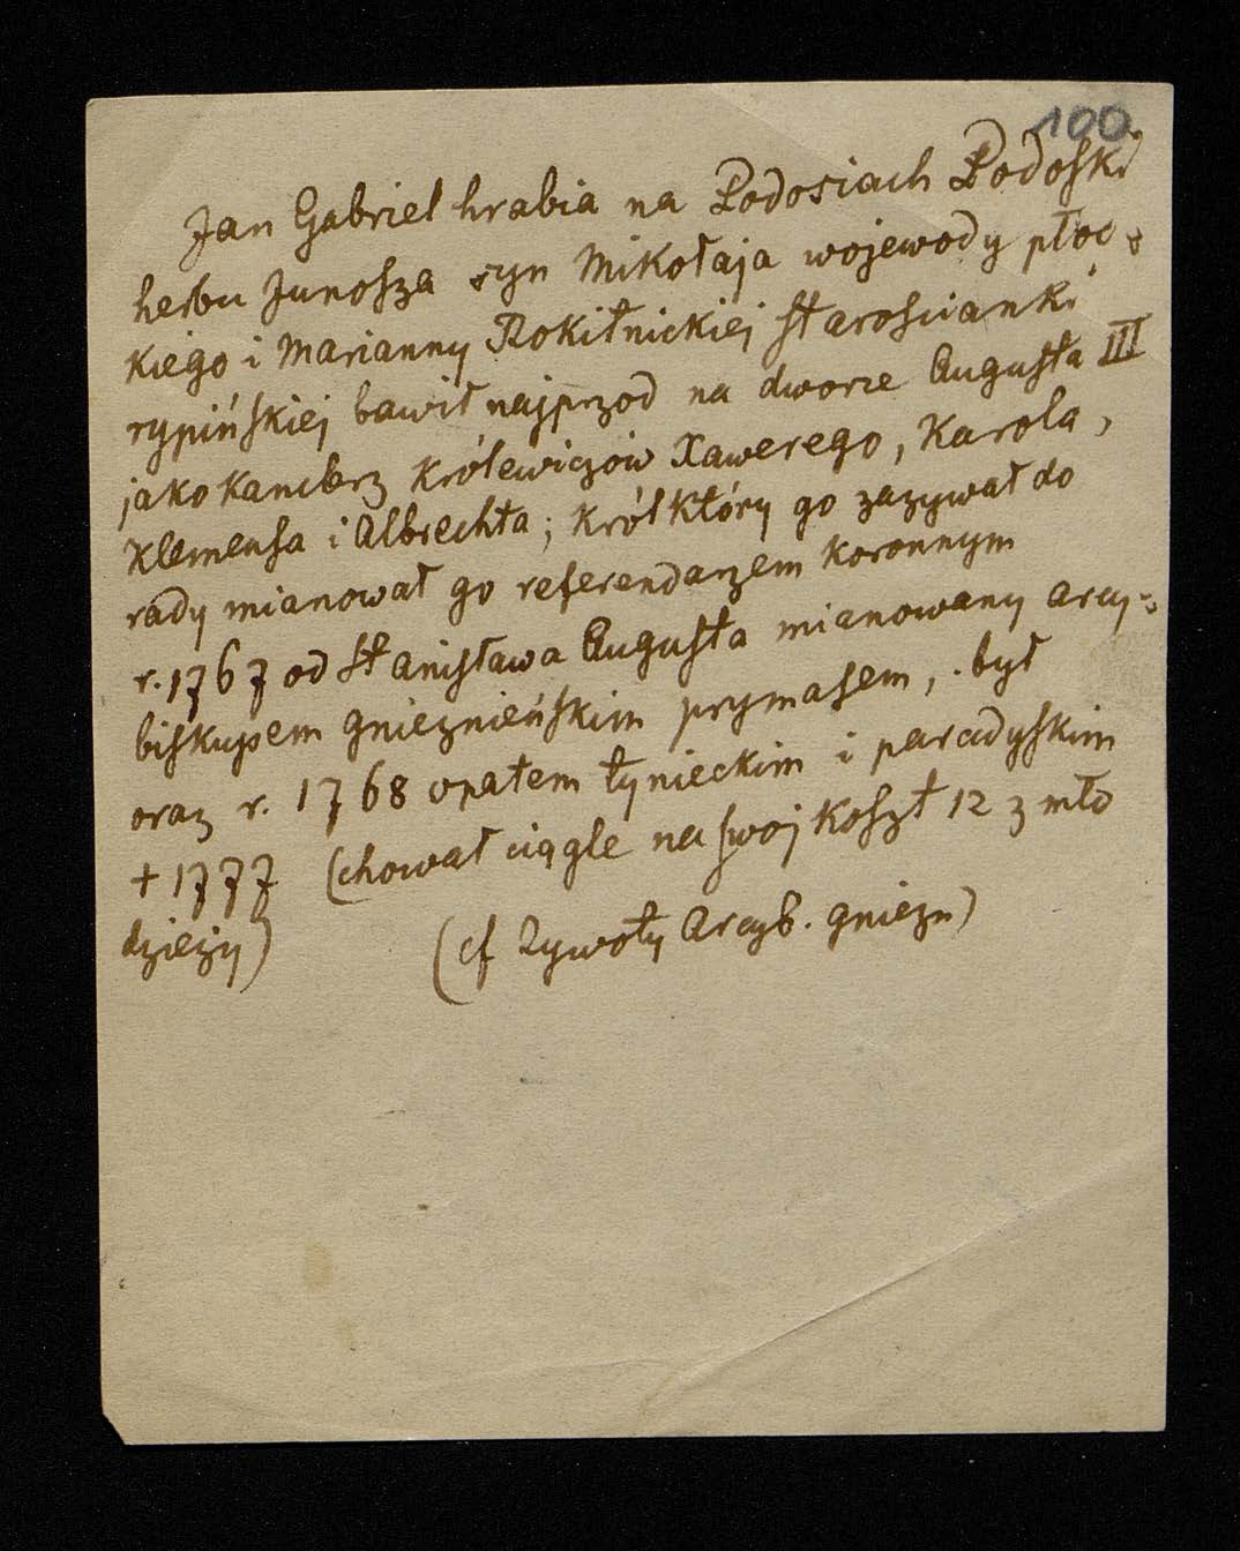 100.
Jan Gabriel hrabia na Podosiach Podoski
herbu Junosza syn Mikołaja wojewody płoc-
kiego i Marianny Rokitnickiej starościanki
rypińskiej bawił najprzod na dworze Augusta III
jako kanclerz królewiczów Xawerego, Karola,
Klemensa i Albrechta; król który go zazywał do
rady mianował go referendarzem koronnym
r. 1767 od Stanisława Augusta mianowany arcy-
biskupem gnieznieńskim prymasem, był
oraz r. 1768 opatem tynieckim i paradyskim
+ 1777 (chował ciągle na swoj koszt 12 z mło
dzieży) (cf Zywoty Arcyb. gniezn)